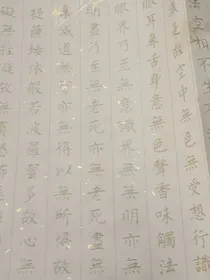 空相不生不
是故空中無色無受想行
眼耳鼻舌身意無色聲香味觸法
眼界乃至無意識界無無明亦
盡乃至無老死亦無老死盡無
滅道無智亦無得以無所得故
提薩埵依般若波羅蜜多故心無
罣礙故